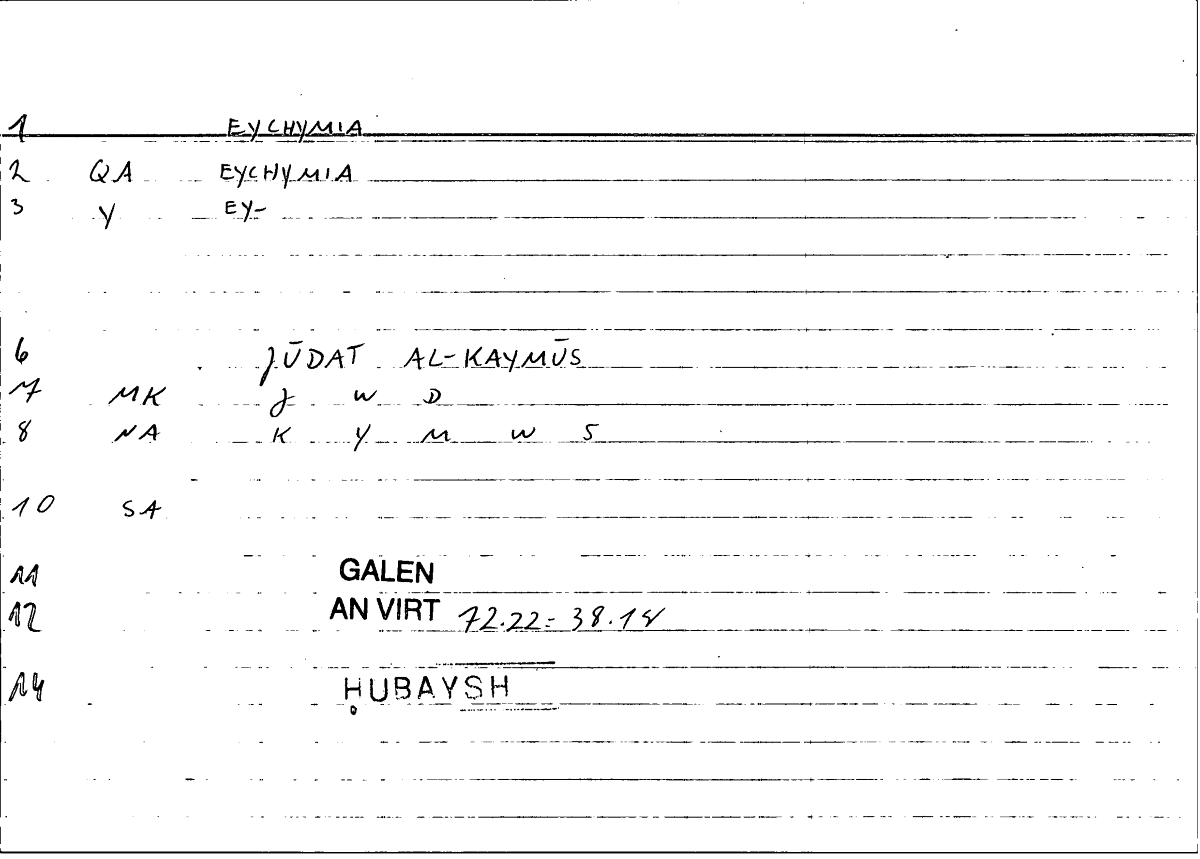 1 EYCHYMIA
2 QA EYCHYMIA
3 Y EY-
6 JŪDAT AL-KAYMŪS
7 MK J W D
8 NA K Y M W S
10 SA
11 GALEN
12 AN VIRT 72.22 = 38.18
14 ḤUBAYSH